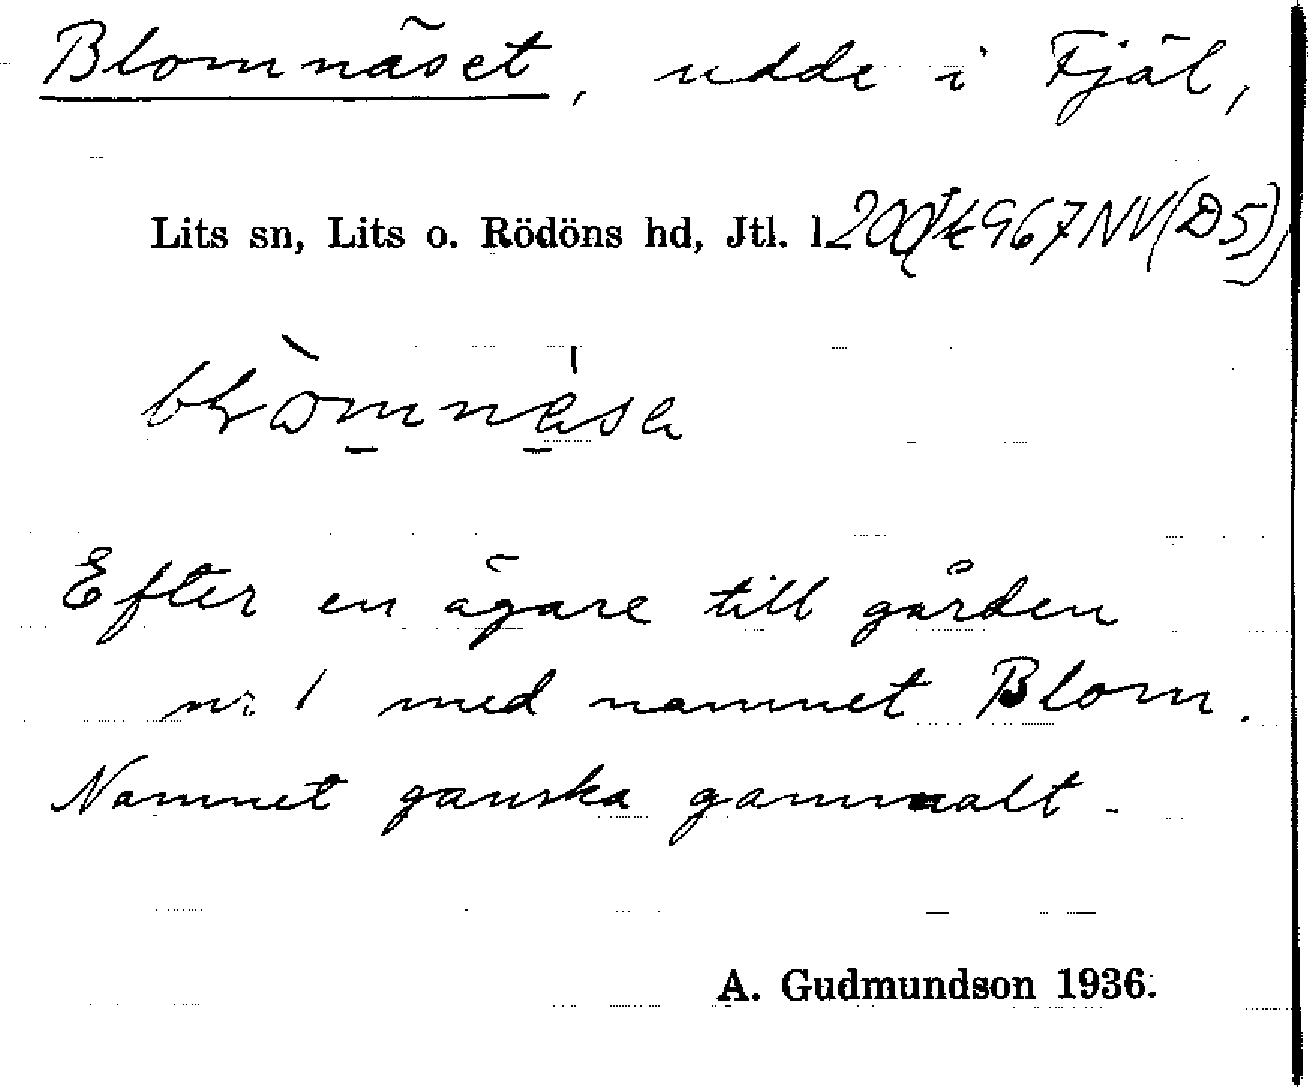 Blomnäset, udde i Fjäl,
Lits sn, Lits o. Rödöns hd, Jtl. l. 967 NV (D5),
Efter en ägare till gården
nr 1 med namnet Blom.
Namnet ganska gammalt.
A. Gudmundson 1936.